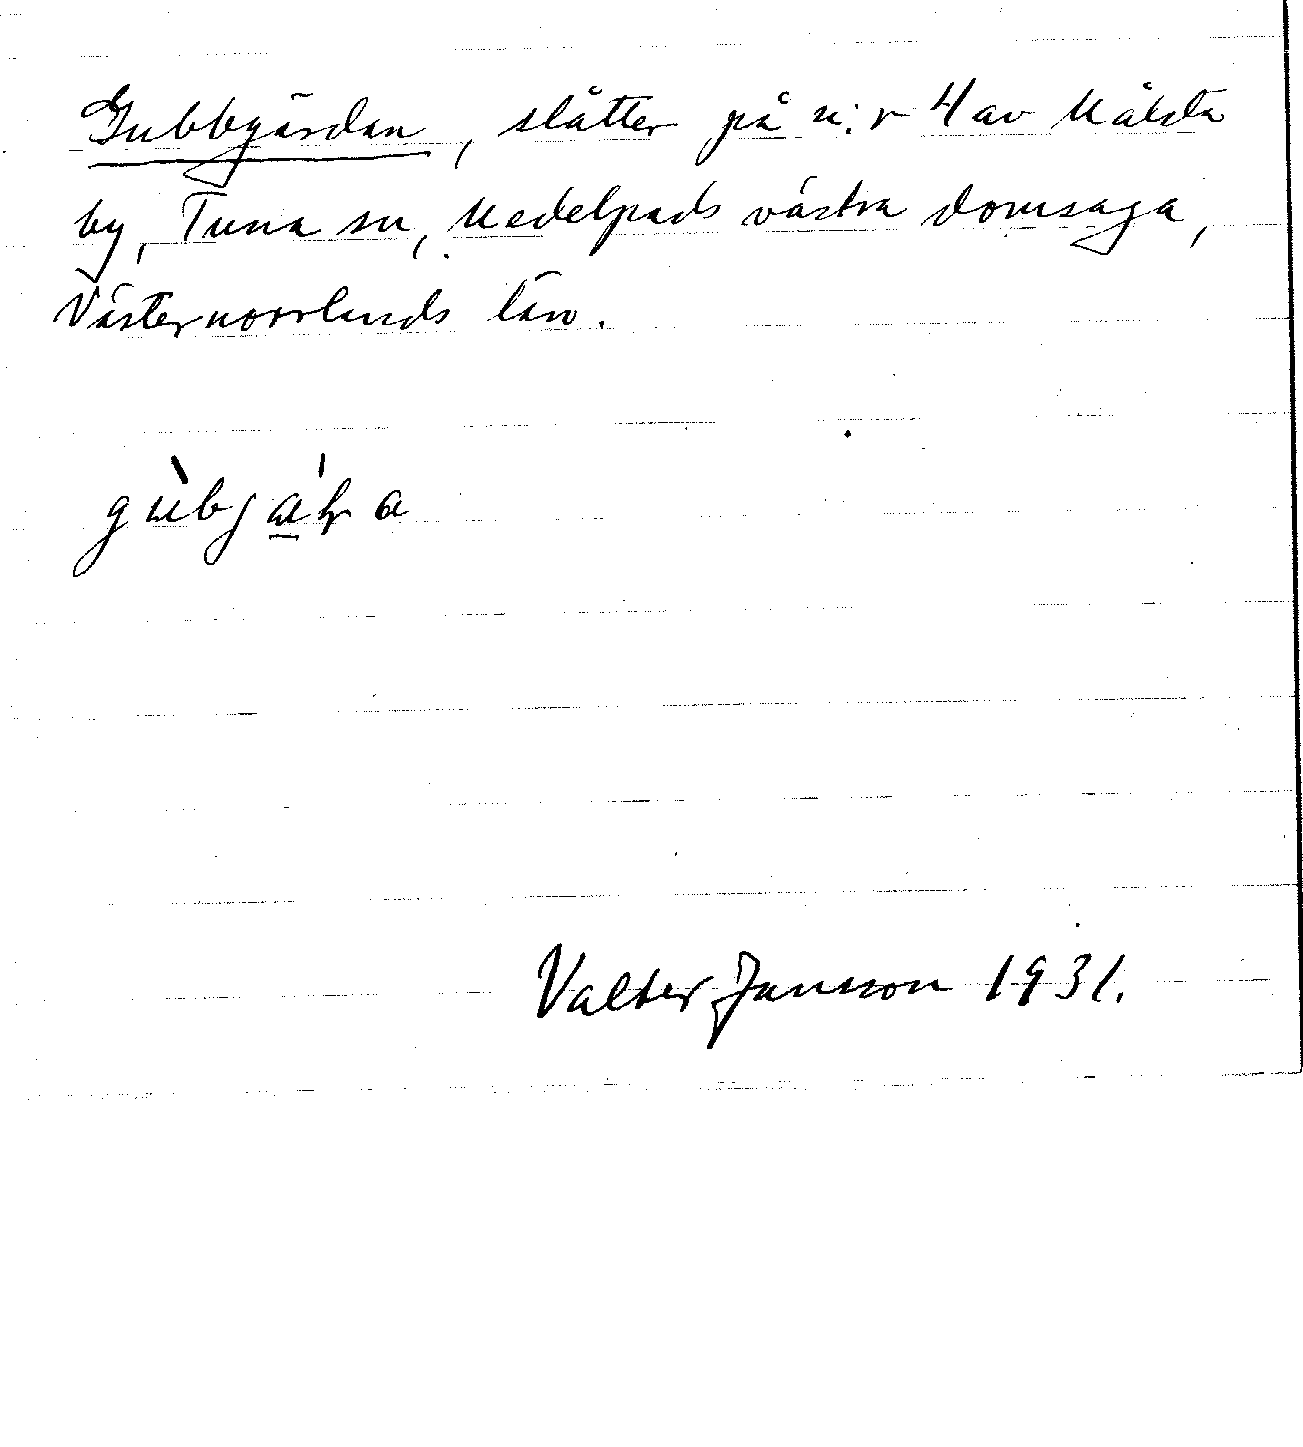 Gubbgärdan, slåtter på n:r 4 av Målsta
by, Tuna sn, Medelpads västra domsaga,
Västernorrlands län.
Valter Jansson 1931.